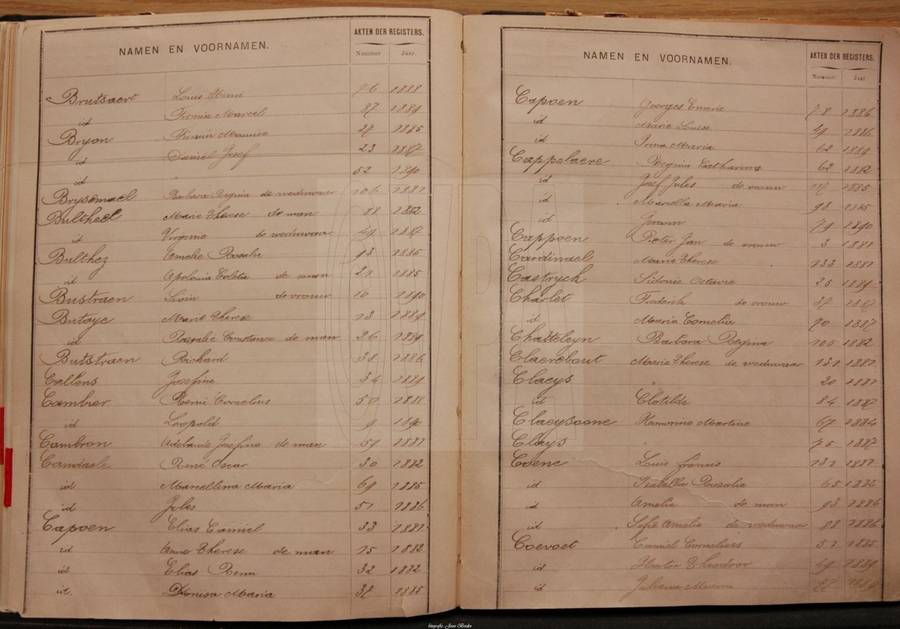 NAMEN EN VOORNAMEN.
AKTEN DER REGISTERS.
Nummer Jaar.
Brutsaert Louis Henri 76 1888
id Firmin Marcel 87 1889
Bryon Firmin Maurice 29 1885
id Daniel Jozef 23 1887
id 52 1890
Brysmael Barbara Regina de weduwaar 106 1881
Bultheel Marie Therese de man 88 1882
id Virginie de weduwaar 49 1887
Bulthez Amelie Rosalie 93 1886
id Apolonia Coleta de man 21 1885
Bustraen Livin de vrouw 10 1890
Butaye Marie Therese 13 1889
id Rosalie Constance de man 26 1889
Butstraen Richard 38 1886
Callens Josefine 34 1889
Cambier Remi Cornelius 50 1888
id Leopold 9 1890
Cambron Adelaide Josefina de man 59 1881
Camdaele René Oscar 30 1882
id Marcellina Maria 69 1885
id Jules 51 1886
Capoen Elias Camiel 33 1881
id Anna Therese de man 15 1882
id Elias Remi 32 1882
id. Dionisia Maria 38 1885
NAMEN EN VOORNAMEN.
AKTEN DER REGISTERS.
Nummer Jaar
Capoen Georges 78 1886
id Marie Louise 49 1886
id Irma Maria 62 1889
Cappelaere Regina Catharina 62 1882
id Jozef Jules de vrouw 1885
id Marcella Maria 98 1885
id 79 1890
Cappoen Pieter Jan de vrouw 3 1881
Cardinael Marie Therese 133 1881
Castryck Sidonie Octavie 25 1889
Charlet Frederik de vrouw 37 1887
id Maria Cornelia 90 1887
Chatteleyn Barbara Regina 105 1882
Claerebout Marie Therese de weduwaar 131 1881
Claeys 20 1881
id Clotilde 84 1882
Claeysoone Hermine Martine 67 1884
Clays 75 1882
Coene Louis francis 132 1881
id Isabella Rosalia 65 1884
id Amelia de man 93 1886
id Sofie Amelia de weduwaar 88 1886
Coevoet Camiel Cornelius 52 1885
id Hector Theodoor 49 1889
id Juliana Maria 1889